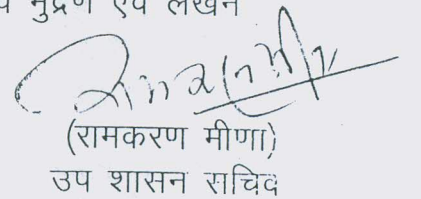 मुद्रण एवं लेखन
(रामकरण मीणा)
उप शासन सचिव